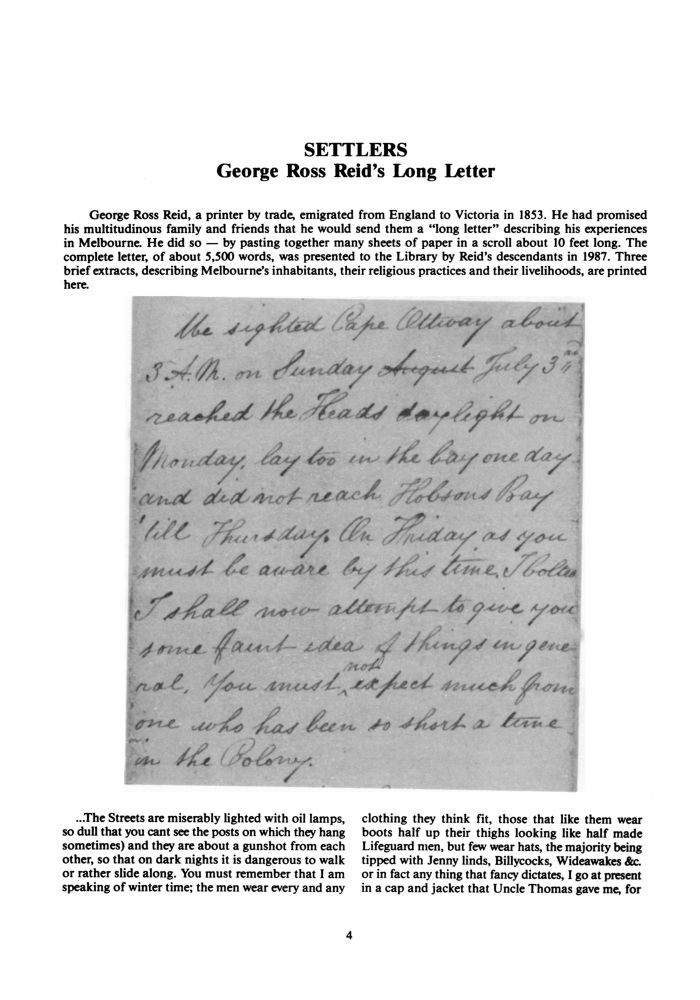 SETTLERS
George Ross Reid's Long Letter
George Ross Reid, a printer by trade, emigrated from England to Victoria in 1853. He had promised
his multitudinous family and friends that he would send them a “long letter” describing his experiences
in Melbourne. He did so — by pasting together many sheets of paper in a scroll about 10 feet long. The
complete letter, of about 5,500 words, was presented to the Library by Reid's descendants in 1987. Three
brief extracts, describing Melbourne's inhabitants, their religious practices and their livelihoods, are printed
here.
We sighted Cape Ottway about
3 A.M. on Sunday August July 3rd
reached the Heads daylight on
Monday, lay too in the bay one day
and did not reach Hobsons Bay
till Thursday. On Friday as you
must be aware by this time, I bolted
I shall now attempt to give you
some faint idea of things in gene
ral, You must not expect much from
one who has been so short a time
in the Colony.
...The Streets are miserably lighted with oil lamps,
so dull that you cant see the posts on which they hang
sometimes) and they are about a gunshot from each
other, so that on dark nights it is dangerous to walk
or rather slide along. You must remember that I am
speaking of winter time; the men wear every and any
clothing they think fit, those that like them wear
boots half up their thighs looking like half made
Lifeguard men, but few wear hats, the majority being
tipped with Jenny linds, Billycocks, Wideawakes &c.
or in fact any thing that fancy dictates, I go at present
in a cap and jacket that Uncle Thomas gave me, for
4